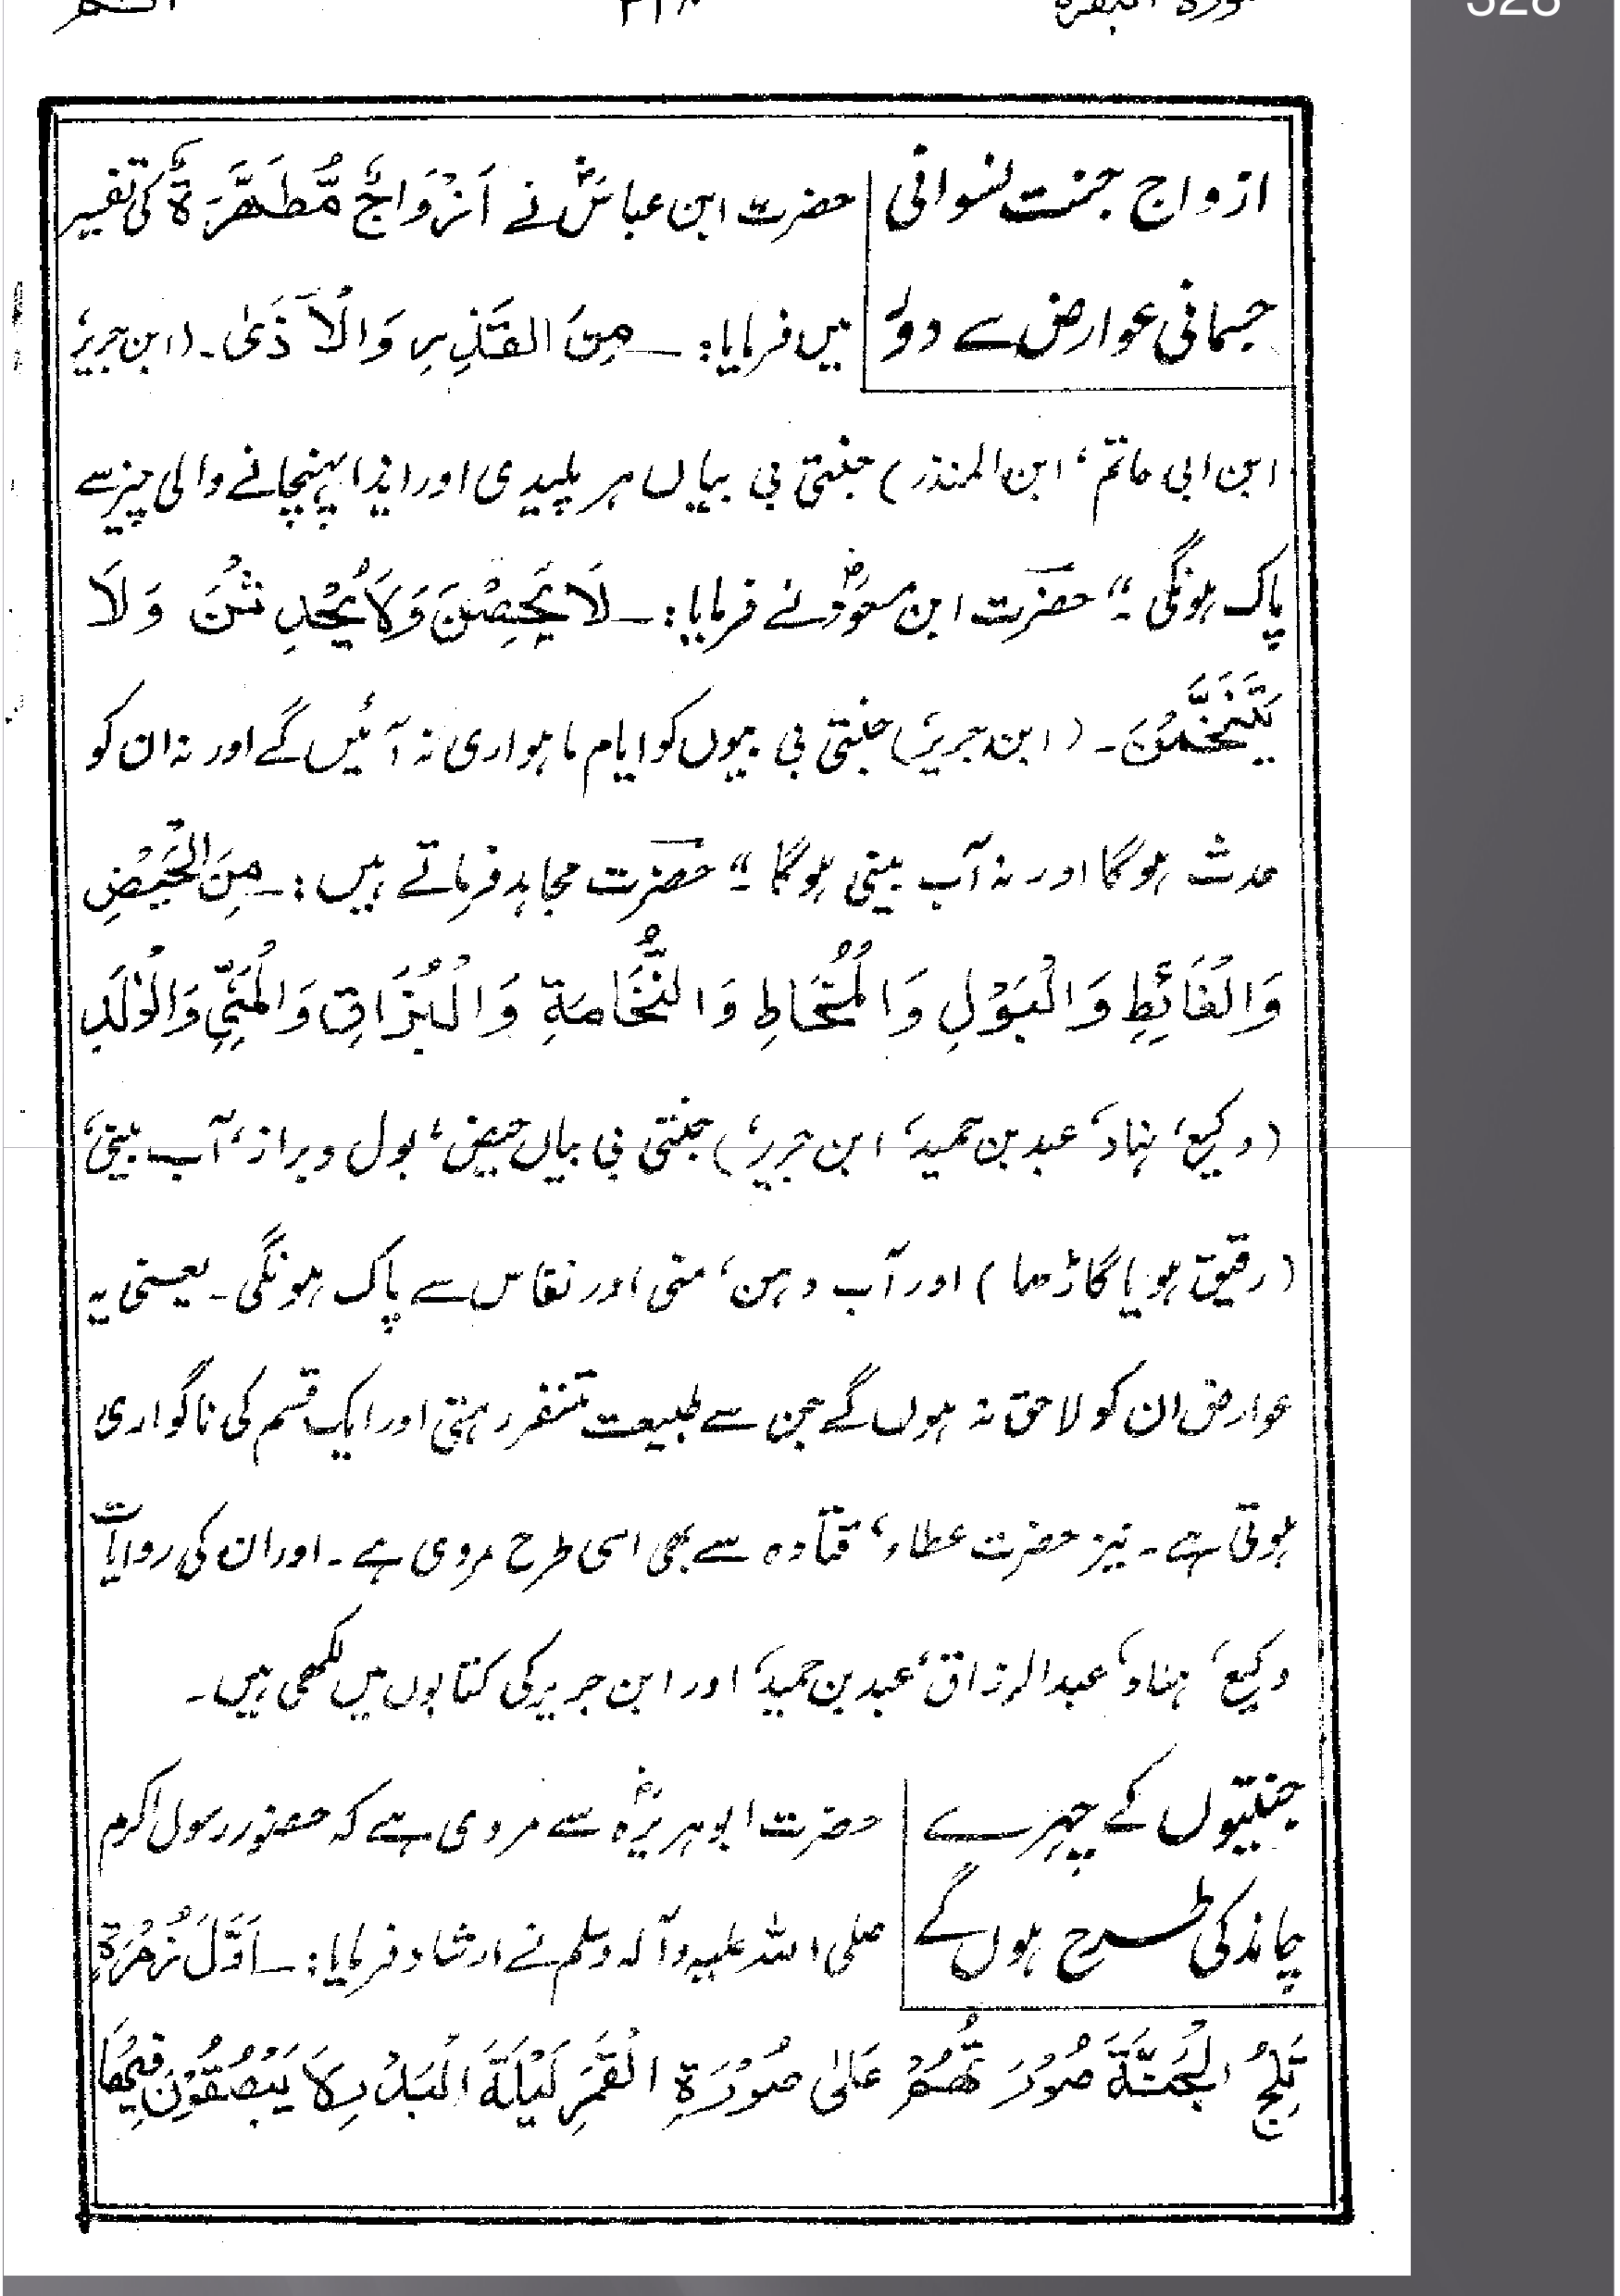 328
سورة البقرة ٣١٨ الٓـمّ
ازواج جنت نسوانی | حضرت ابن عباسؓ نے اَزْوَاجٌ مُّطَهَّرَةٌ کی تفسیر
جسمانی عوارض سے دور | میں فرمایا: ــ مِنَ القَذِرِ وَالْاَذَىٰ۔ (ابن جریر،
ابن ابی حاتم، ابن المنذر) جنتی بی بیاں ہر پلیدی اور ایذا پہنچانے والی چیز سے
پاک ہونگی۔" حضرت ابن مسعودؓ نے فرمایا: ــ لَا يَحِضْنَ وَلَا يُحْدِثْنَ وَلَا
يَتَنَخَّمْنَ۔ (ابن جریر) جنتی بی بیوں کو ایام ماہواری نہ آئیں گے اور نہ ان کو
حدث ہوگا اور نہ آب بینی ہوگا۔" حضرت مجاہد فرماتے ہیں: ــ مِنَ الْحَيْضِ
وَالْغَائِطِ وَالْبَوْلِ وَالْمُخَاطِ وَالنُّخَامَةِ وَالْبُزَاقِ وَالْمَنِيِّ وَالْوَلَدِ
(وکیع، ہناد، عبد بن حمید، ابن جریر،) جنتی بی بیاں حیض، بول و براز، آب بینی،
(رقیق ہو یا گاڑھا) اور آب دہن، منی اور نفاس سے پاک ہونگی۔ یعنی یہ
عوارض ان کو لاحق نہ ہوں گے جن سے طبیعت متنفر رہتی اور ایک قسم کی ناگواری
ہوتی ہے۔ نیز حضرت عطاء، قتادہ سے بھی اسی طرح مروی ہے۔ اور ان کی روایات
وکیع، ہناد، عبد الرزاق، عبد بن حمید، اور ابن جریر کی کتابوں میں لکھی ہیں۔
جنتیوں کے چہرے | حضرت ابوہریرہؓ سے مروی ہے کہ حضور رسول اکرم
چاند کی طرح ہوں گے | صلی اللہ علیہ وآلہ وسلم نے ارشاد فرمایا: ــ اَوَّلَ زُمْرَةٍ
تَلِجُ الْجَنَّةَ صُوْرَتُهُمْ عَلىٰ صُوْرَةِ الْقَمَرِ لَيْلَةَ الْبَدْرِ لَا يَبْصُقُوْنَ فِيْهَا